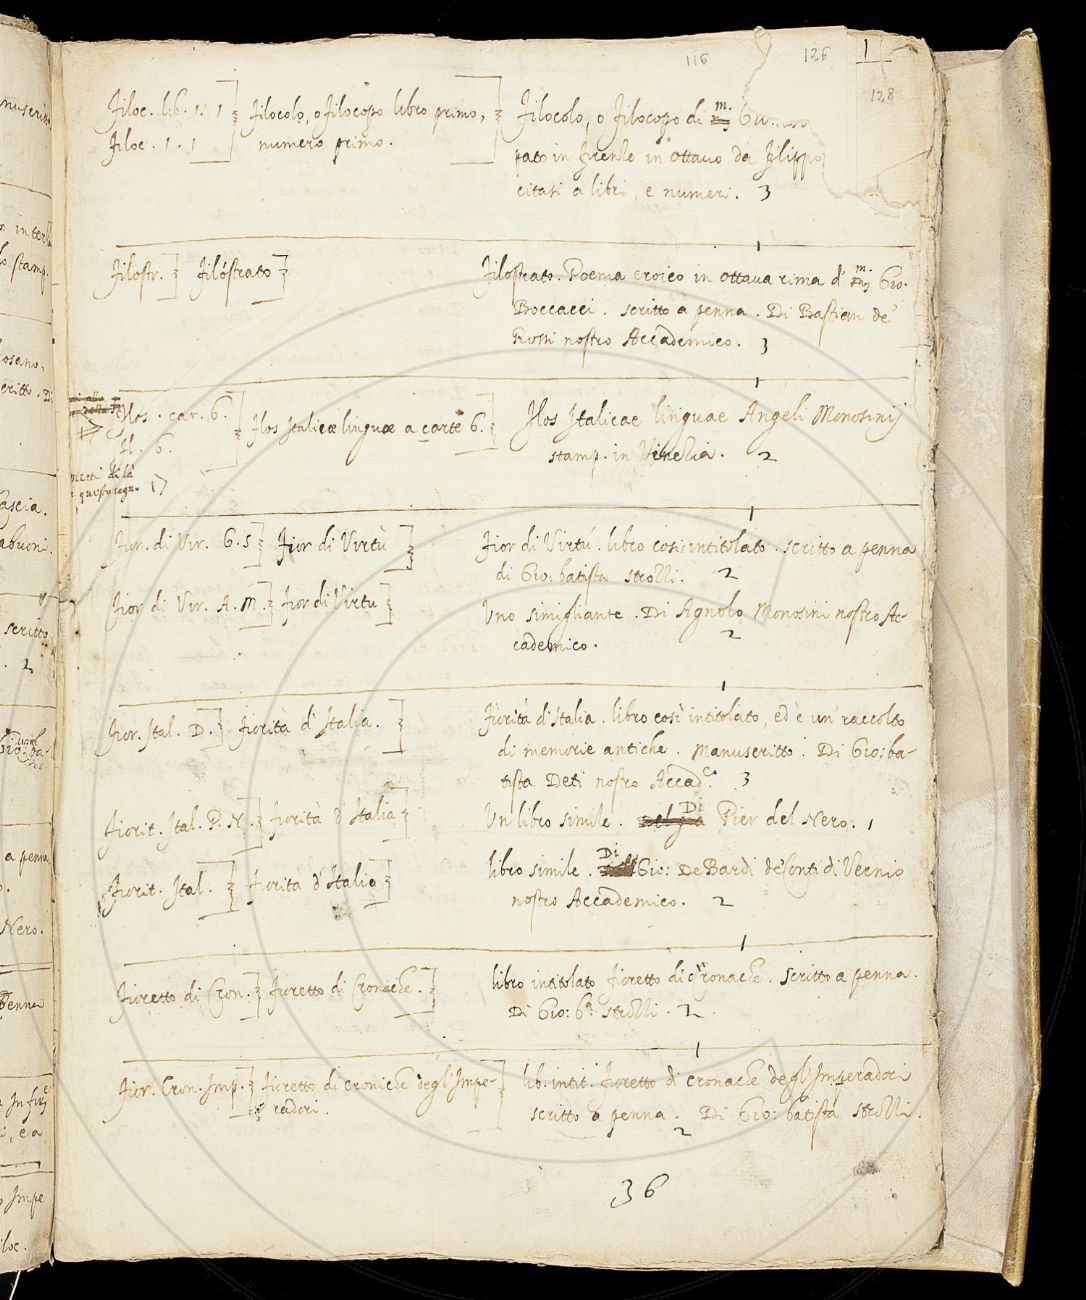 116 126 1
128
Filoc. lib. 1. 1 Filocolo, o Filocopo libro primo, Filocolo, o Filocopo di m. Gio.
Filoc. 1. 1 numero primo. pato in Firenze in ottavo da Filippo
citasi a libri, e numeri. 3
1
Filostr. Filóstrato Filostrato. Poema eroico in ottava rima d' m. Gio.
Boccacci. scritto a penna. Di Bastian de'
Rossi nostro Accademico. 3
1
Flos. car. 6. Flos Italicæ linguæ a carte 6. Flos Italicae linguae Angeli Monosinij
fl. 6. stamp. in Venezia. 2
metti di là
questo segno
1
Fior. di Vir. G. S Fior di Virtù Fior di Virtú. libro così intitolato. scritto a penna
di Gio: batista strozzi. 2
Fior di Vir. A. M. Fior di Virtu Uno simigliante. Di Agnolo Monosini nostro Ac-
cademico. 2
1
Fior. Ital. D. Fiorità d'Italia. Fiorità d'Italia. libro così intitolato, ed è un' raccolto
di memorie antiche. Manuscritto. Di Gio: ba-
tista Deti nostro Accad.co 3
Fiorit. Ital. P. N. Fiorità d'Italia Un libro simile. Di Pier del Nero. 1
Fiorit. Ital. Fiorità d'Italia libro simile. Di Gio: De Bardi de Conti di Vernio
nostro Accademico. 2
1
Fioretto di Cron. Fioretto di Cronache. libro intitolato fioretto di cronache. scritto a penna.
Di Gio: b.a strozzi. 2
1
Fior. Cron. Imp. Fioretto di croniche degl'Impe- lib. intit. fioretto di cronache degl'Imperadori
radori. scritto a penna. Di Gio: batista strozzi.
2
36